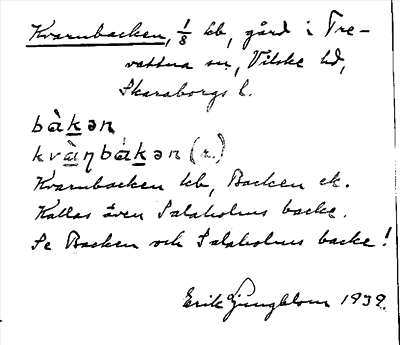 Kvarnbacken, 1/8 kb, gård i Tre-
vattna sn, Vilske hd,
Skaraborgs l.
bàkən
kvàṇbákən (r.)
Kvarnbacken kb, Backen ek.
Kallas även Salaholms backe.
Se Backen och Salaholms backe!
Erik Ljungblom 1939.